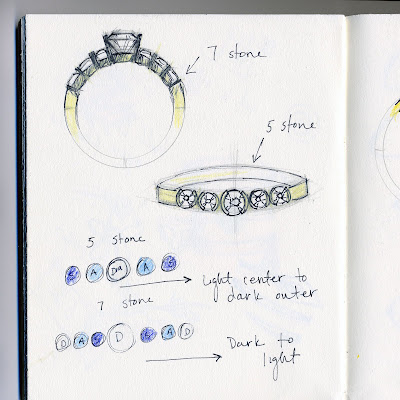 7 stone
5 stone
5 stone
S A Da A S
Light center to
dark outer
7 stone
D A S D S A D
Dark to
light